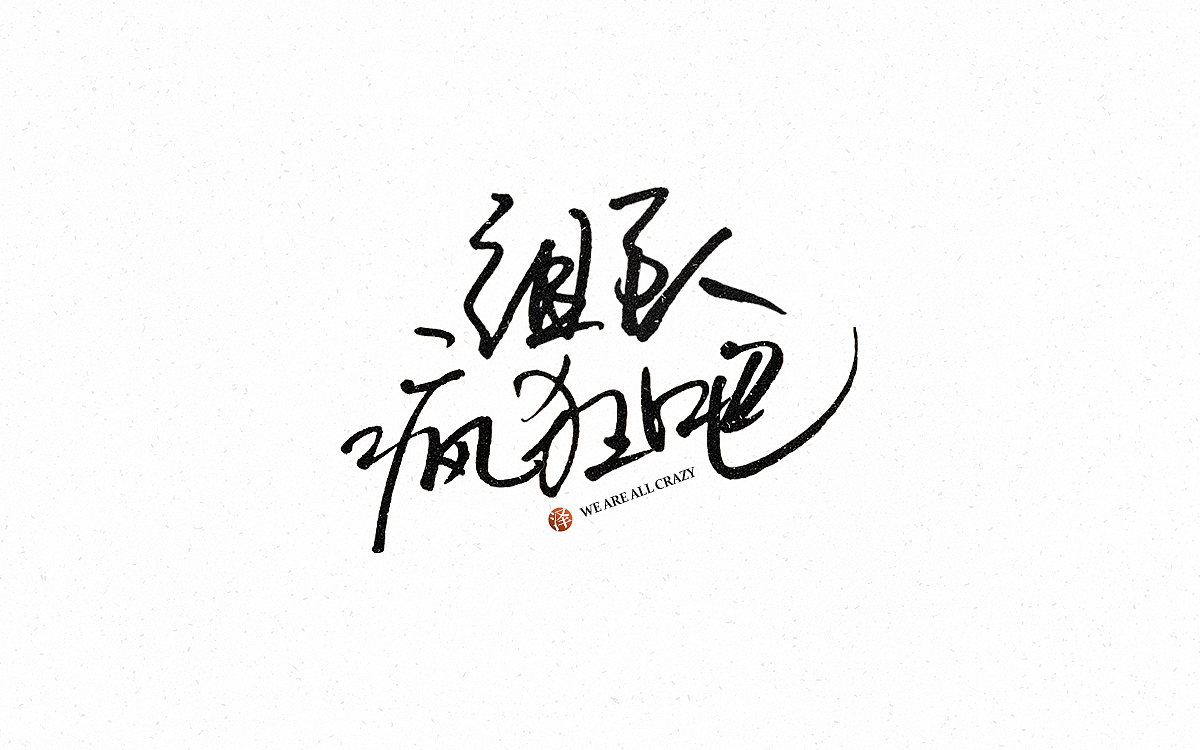 组队
疯狂吧
泽 WE ARE ALL CRAZY